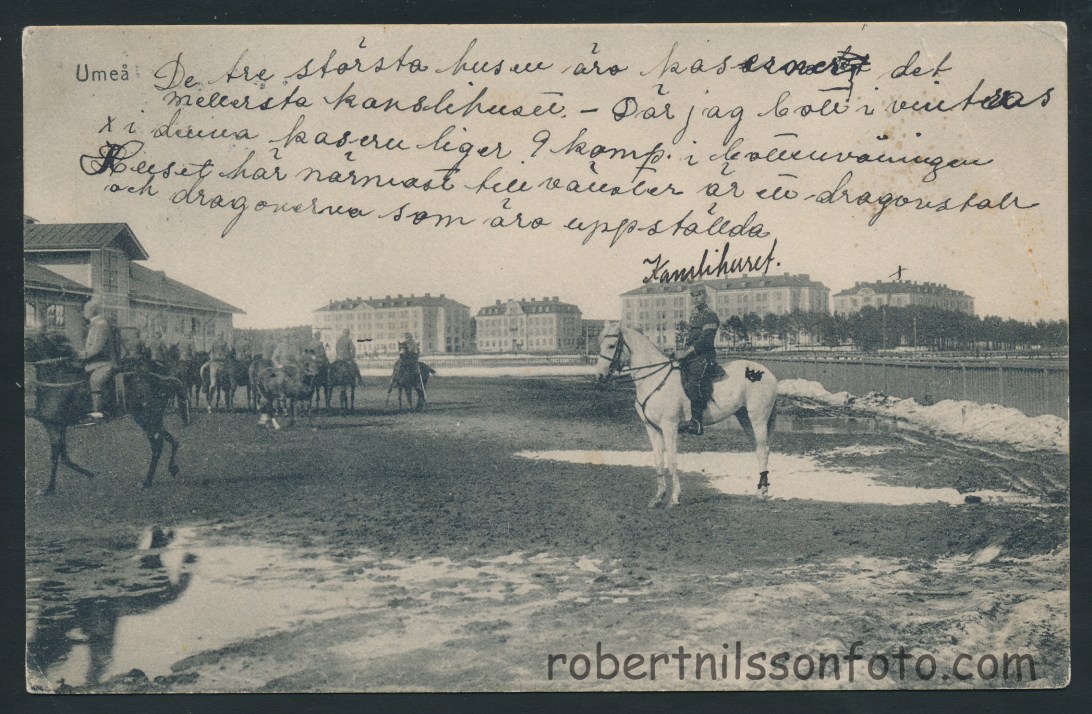 Umeå
De tre största husen äro kaserner, det
mellersta kanslihuset. - Där jag bott i vintras
x i denna kasern ligger 9 komp. i bottenvåningen
Huset här närmast till vänster är ett dragonstall
och dragonerna som äro uppställda
Kanslihuset.
x
robertnilssonfoto.com